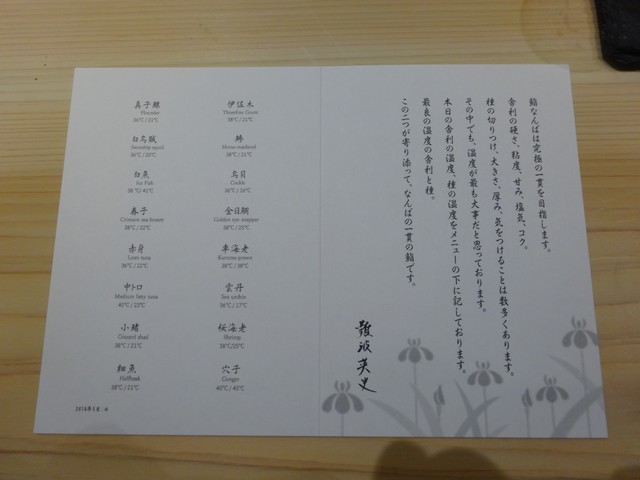 真子鰈
Flounder
36℃ / 21℃
白烏賊
Swordtip squid
36℃ / 20℃
白魚
Ice Fish
38℃ / 41℃
春子
Crimson sea bream
38℃ / 22℃
赤身
Lean tuna
36℃ / 22℃
中トロ
Medium fatty tuna
40℃ / 23℃
小鰭
Gizzard shad
38℃ / 21℃
細魚
Halfbeak
38℃ / 21℃
伊佐木
Threeline Grunt
38℃ / 21℃
鯵
Horse-mackerel
38℃ / 21℃
鳥貝
Cockle
36℃ / 24℃
金目鯛
Golden eye snapper
38℃ / 25℃
車海老
Kuruma prawn
38℃ / 38℃
雲丹
Sea urchin
36℃ / 17℃
桜海老
Shrimp
38℃/25℃
穴子
Conger
40℃ / 45℃
鮨なんばは究極の一貫を目指します。
舎利の硬さ、粘度、甘み、塩気、コク。
種の切りつけ、大きさ、厚み、気をつけることは数多くあります。
その中でも、温度が最も大事だと思っております。
本日の舎利の温度、種の温度をメニューの下に記しております。
最良の温度の舎利と種。
この二つが寄り添って、なんばの一貫の鮨です。
難波英史